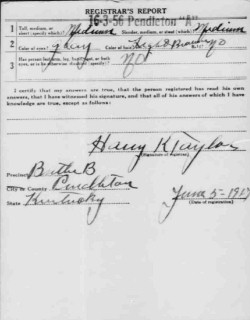 REGISTRAR'S REPORT
16-3-56 Pendleton "A"
1 Tall, medium, or short (specify which)? Medium Slender, medium, or stout (which)? Medium
2 Color of eyes? Color of hair? Bald? No
3 Has person lost arm, leg, hand, foot, or both eyes, or is he otherwise disabled (specify)? No
I certify that my answers are true, that the person registered has read his own answers, that I have witnessed his signature, and that all of his answers of which I have knowledge are true, except as follows:
Harry K Taylor
(Signature of registrar)
Precinct Butler B
City or County Pendleton
State Kentucky
June 5-1917
(Date of registration)